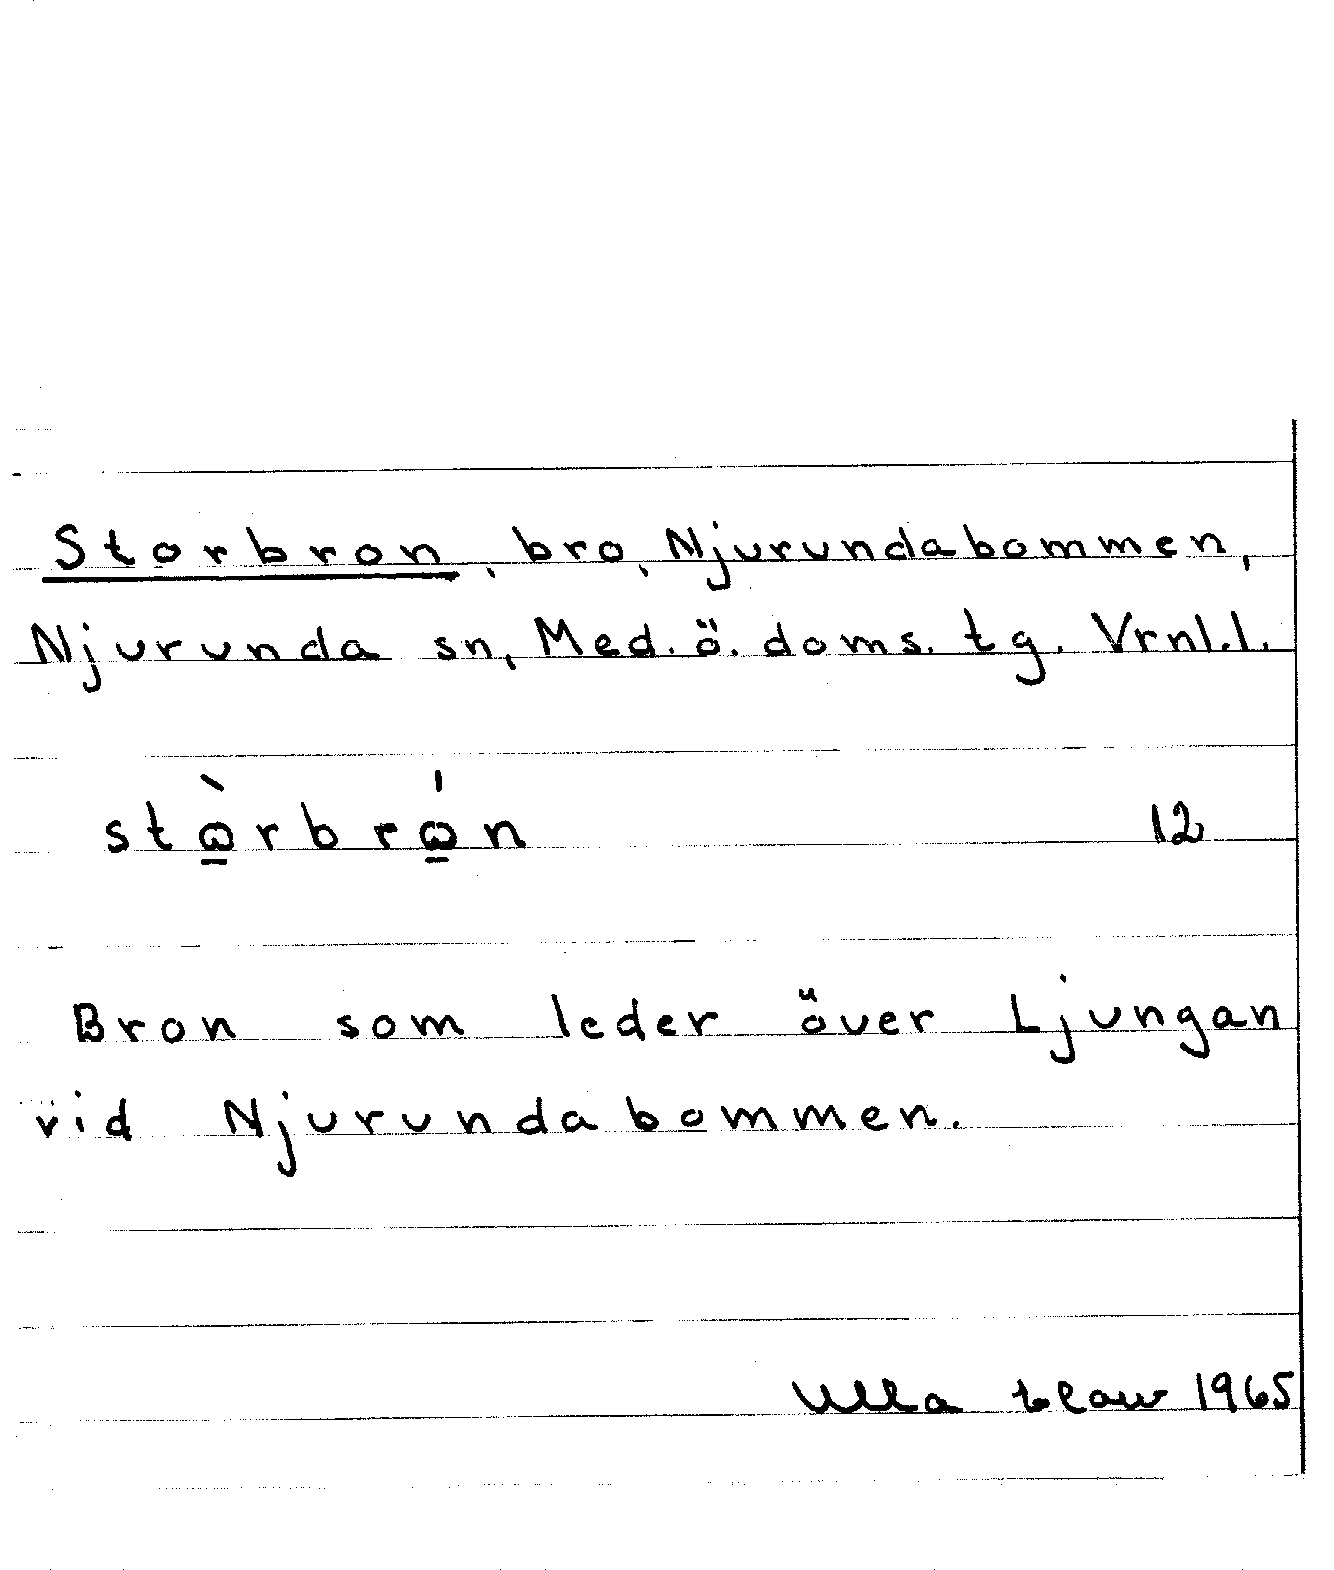 Storbron, bro, Njurundabommen,
Njurunda sn, Med. ö. doms. tg. Vrnl. l.
stὼ̱rbrώ̱n 12
Bron som leder över Ljungan
vid Njurundabommen.
Ulla 1965